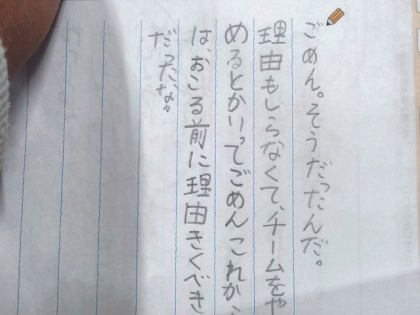 ごめん。そうだったんだ。
理由もしらなくて、チームをや
めるとかいってごめんこれから
は、おこる前に理由きくべき
だったな。